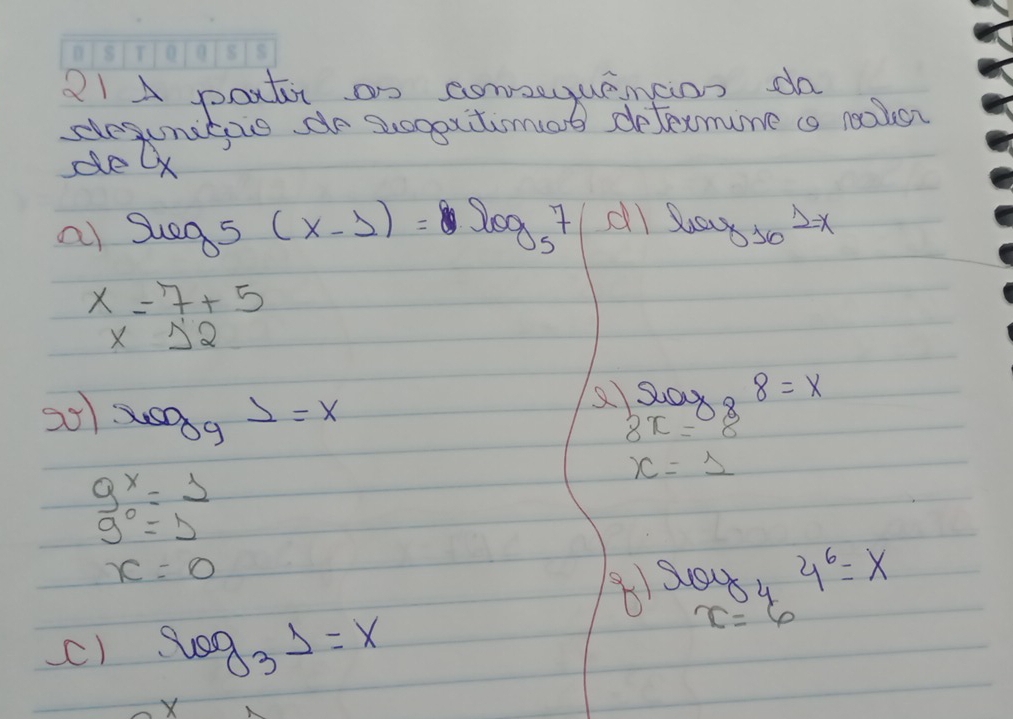 D S T Q Q S S
2) A partir as consequências da
definição de logaritimos determine o valor
de x
a) log 5 (x - 1) = log₅ 7
x = 7 + 5
x 12
b) log₉ 1 = x
9ˣ = 1
9⁰ = 1
x = 0
c) log₃ 1 = x
d) log₁₀ 1 = x
e) log₈ 8 = x
8x = 8
x = 1
f) log₄ 4⁶ = x
x = 6